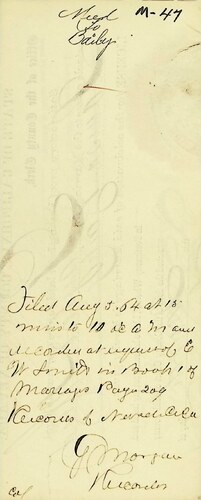 M-47
Mead
To
Baily
Filed Aug 5. 64 at 15
mins to 10 oc A M and
recorded at request of E
W Smith in Book 1 of
Marriages Page 209
Records of Nevada Co Ca
Morgan
Recorder